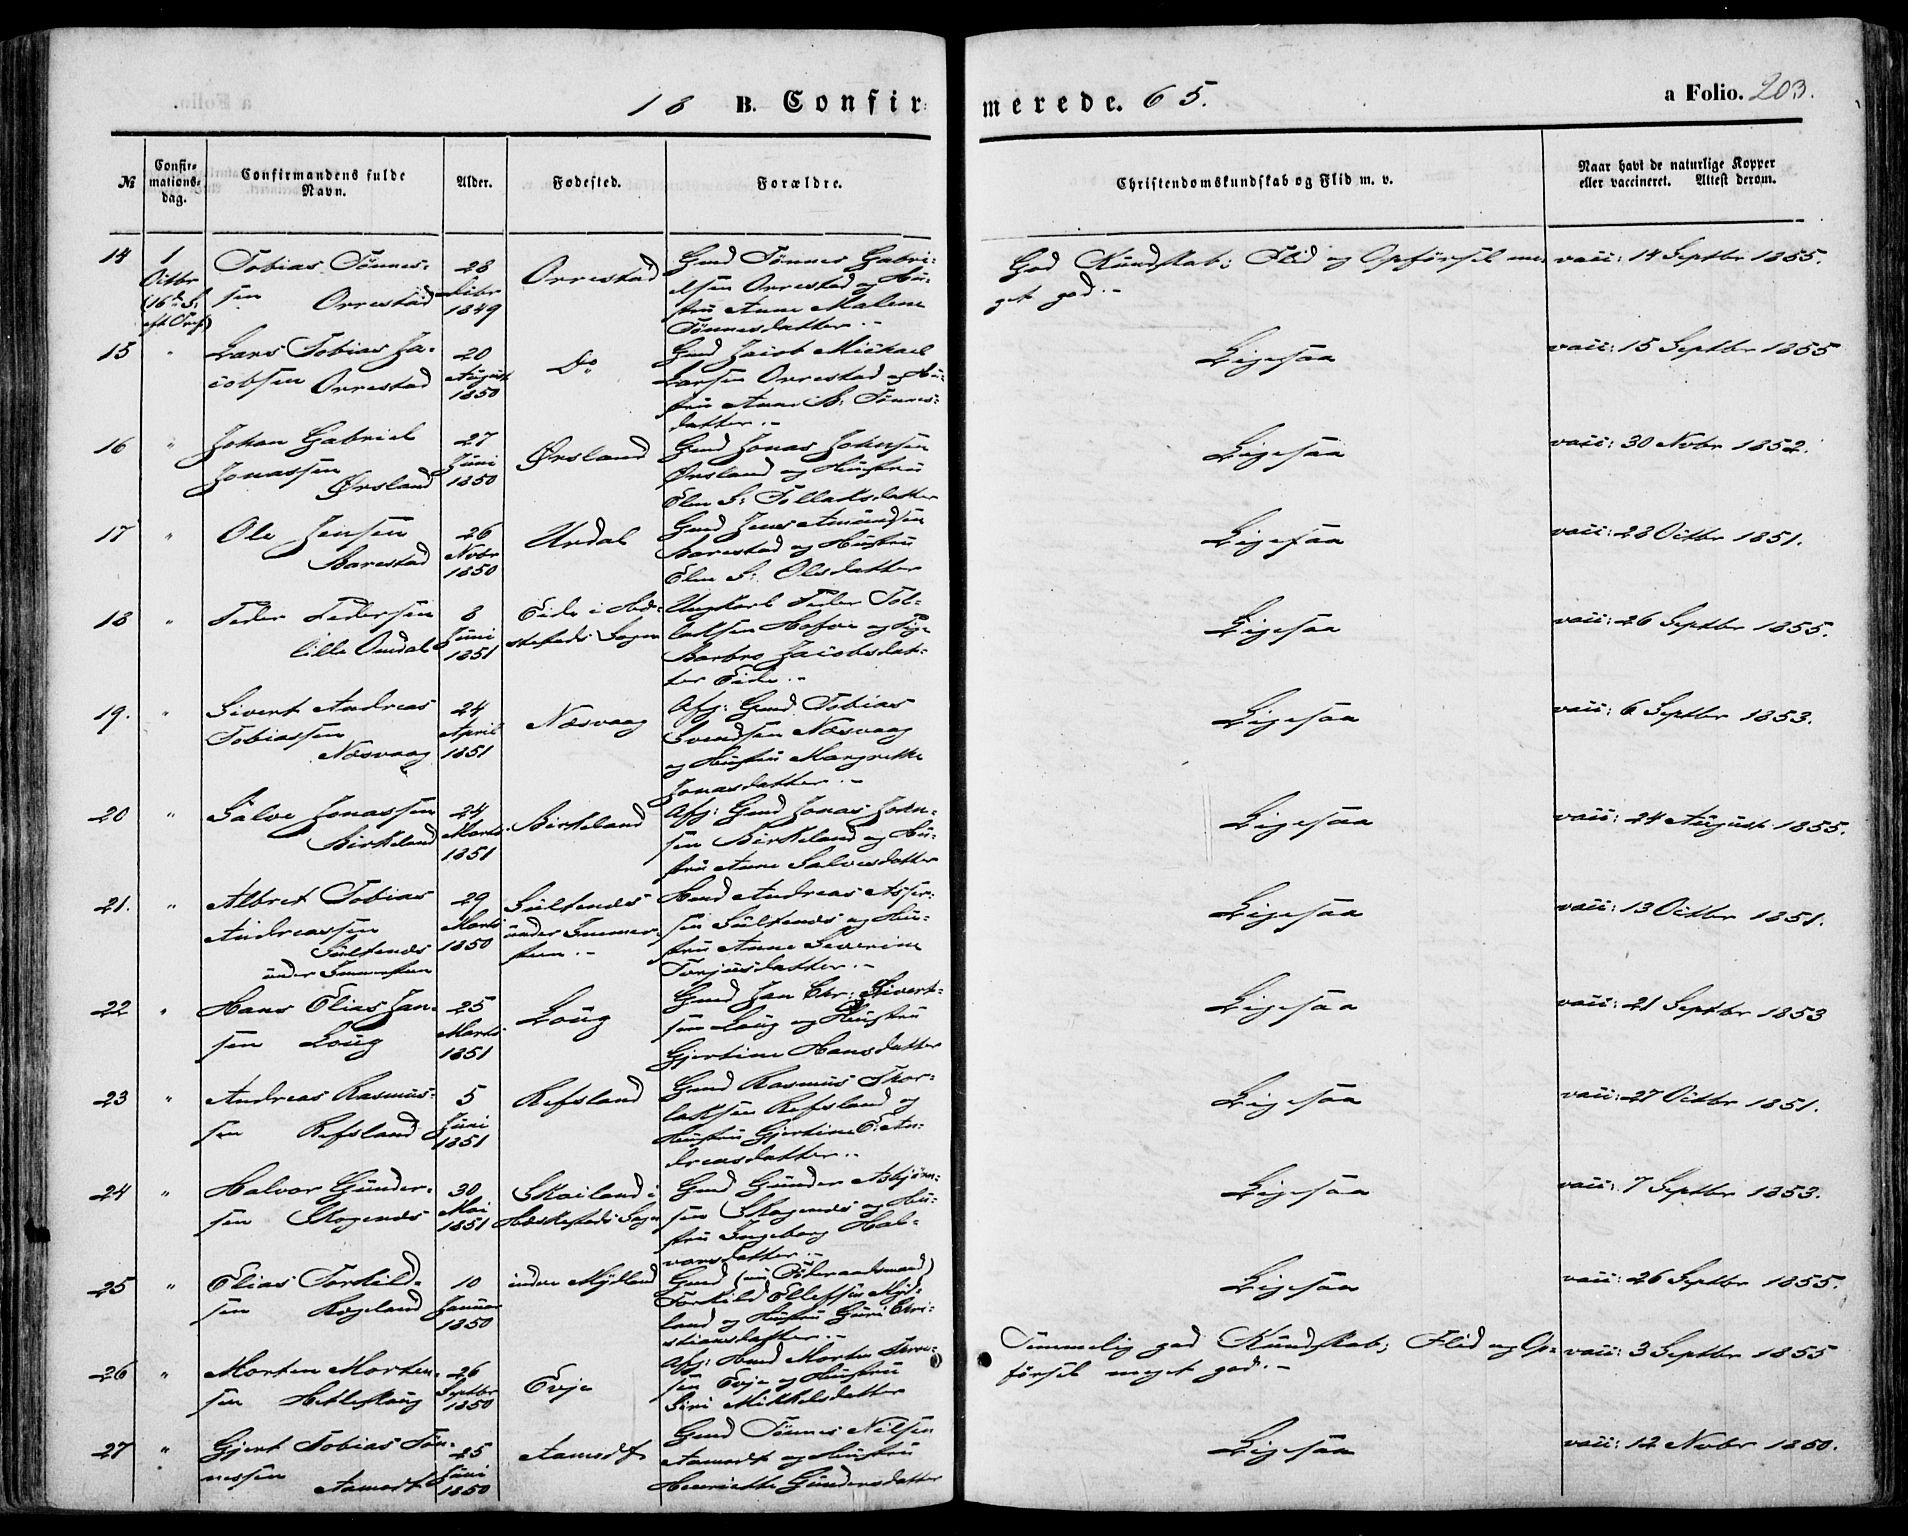 18 B. Confirmerede. 65.
a Folio. 203.
№
Confirmations-dag.
Confirmandens fulde Navn.
Alder.
Fødested.
Forældre.
Christendomskundskab og Flid m. v.
Naar havt de naturlige Kopper eller vaccineret. Attest derom.
14
1 Octbr
(16de S. eft Tref)
Tobias Tønnes-
sen Orrestad
28
1849
Orrestad
Gmd Tønnes Gabri-
elsen Orrestad og Hu-
stru Anne Malene
Tønnesdatter.-
God Kundskab; Flid og Opførsel me-
get god.-
vacc: 14 Septbr 1855.
15
"
Lars Tobias Ja-
cobsen Orrestad
20
August
1850
Do
Gmd Jacob Michael
Larsen Orrestad og Hu-
stru Anne S: Tønnes-
datter.-
Ligesaa
vacc: 15 Septbr 1855
16
"
Johan Gabriel
Jonassen
Ørsland
27
Juni
1850
Ørsland
Gmd Jonas Johnsen
Ørsland og Hustru
Elen S: Tollaksdatter
Ligesaa
vacc: 30 Novbr 1852.
17
"
Ole Jensen
Barestad
26
Novbr
1850
Urdal
Gmd Jens Amundsen
Barestad og Hustru
Elen S: Olsdatter
Ligesaa
vacc: 28 Octbr 1851.
18
"
Peder Pedersen
lille Omdal
8
Juni
1851
Eide i Hæ-
skestads Sogn
Ungkarl Peder Tol-
laksen Hofve og Pige
Barbro Jacobsdat-
ter Eide.-
Ligesaa
vacc: 26 Septbr 1855.
19.
"
Sivert Andreas
Tobiassen
Næsvaag
24
April
1851
Næsvaag
Afg: Gmd Tobias
Svendsen Næsvaag
og Hustru Margrethe
Jonasdatter.-
Ligesaa
vacc: 6 Septbr 1853.
20
"
Salve Jonassen
Birkeland
24
Marts
1851
Birkeland
Afg: Gmd Jonas John-
sen Birkeland og Hu-
stru Anne Salvesdatter
Ligesaa
vacc: 24 August 1855.
21.
"
Albret Tobias
Andreassen
Sultenes
under Immerstein
29
Marts
1850
Sultenes
under Immer-
stein.-
Hmd Andreas Asser-
sen Sultenes og Hu-
stru Anne Severine
Torjusdatter.-
Ligesaa
vacc: 13 Octbr 1851.
22
"
Hans Elias Jan-
sen Loug
25
Marts
1851
Loug
Gmd Jan Chr: Sivert-
sen Loug og Hustru
Gjertine Hansdatter
Ligesaa
vacc: 21 Septbr 1853
23
"
Andreas Rasmus-
sen Refsland
5
Juni
1851
Refsland
Gmd Rasmus Thor-
laksen Refsland og
Hustru Gjertine E: An-
dreasdatter.-
Ligesaa
vacc: 27 Octbr 1851.
24
"
Halvor Gunder-
sen Skogenes
30
Mai
1851
Skailand i
Hæskestads Sogn
Gmd Gunder Asbjørn-
sen Skogenes og Hu-
stru Ingeborg Hal-
vorsdatter.-
Ligesaa
vacc: 7 Septbr 1853.
25
"
Elias Torkild-
sen Rægeland
10
Januar
1850
indre Mydland
Gmd (nu Føderaadsmand)
Torkild Ellefsen Myd-
land og Hustru Guri Chri-
stiansdatter.-
Ligesaa
vacc: 26 Septbr 1855.
26
"
Morten Morten-
sen Hetleskoug
26
Septbr
1850
Evje
Afg: Hmd Morten
sen Evje og Hustru
Siri Mikkelsdatter
Temmelig god Kundskab; Flid og Op-
førsel meget god.-
vacc: 3 Septbr 1855
27
"
Gjert Tobias Tøn-
nessen
Aamodt
25
Juni
1850
Aamodt
Gmd Tønnes Nilsen
Aamodt og Hustru
Henriette Gundersdatter
Ligesaa
vacc: 12 Novbr 1850.